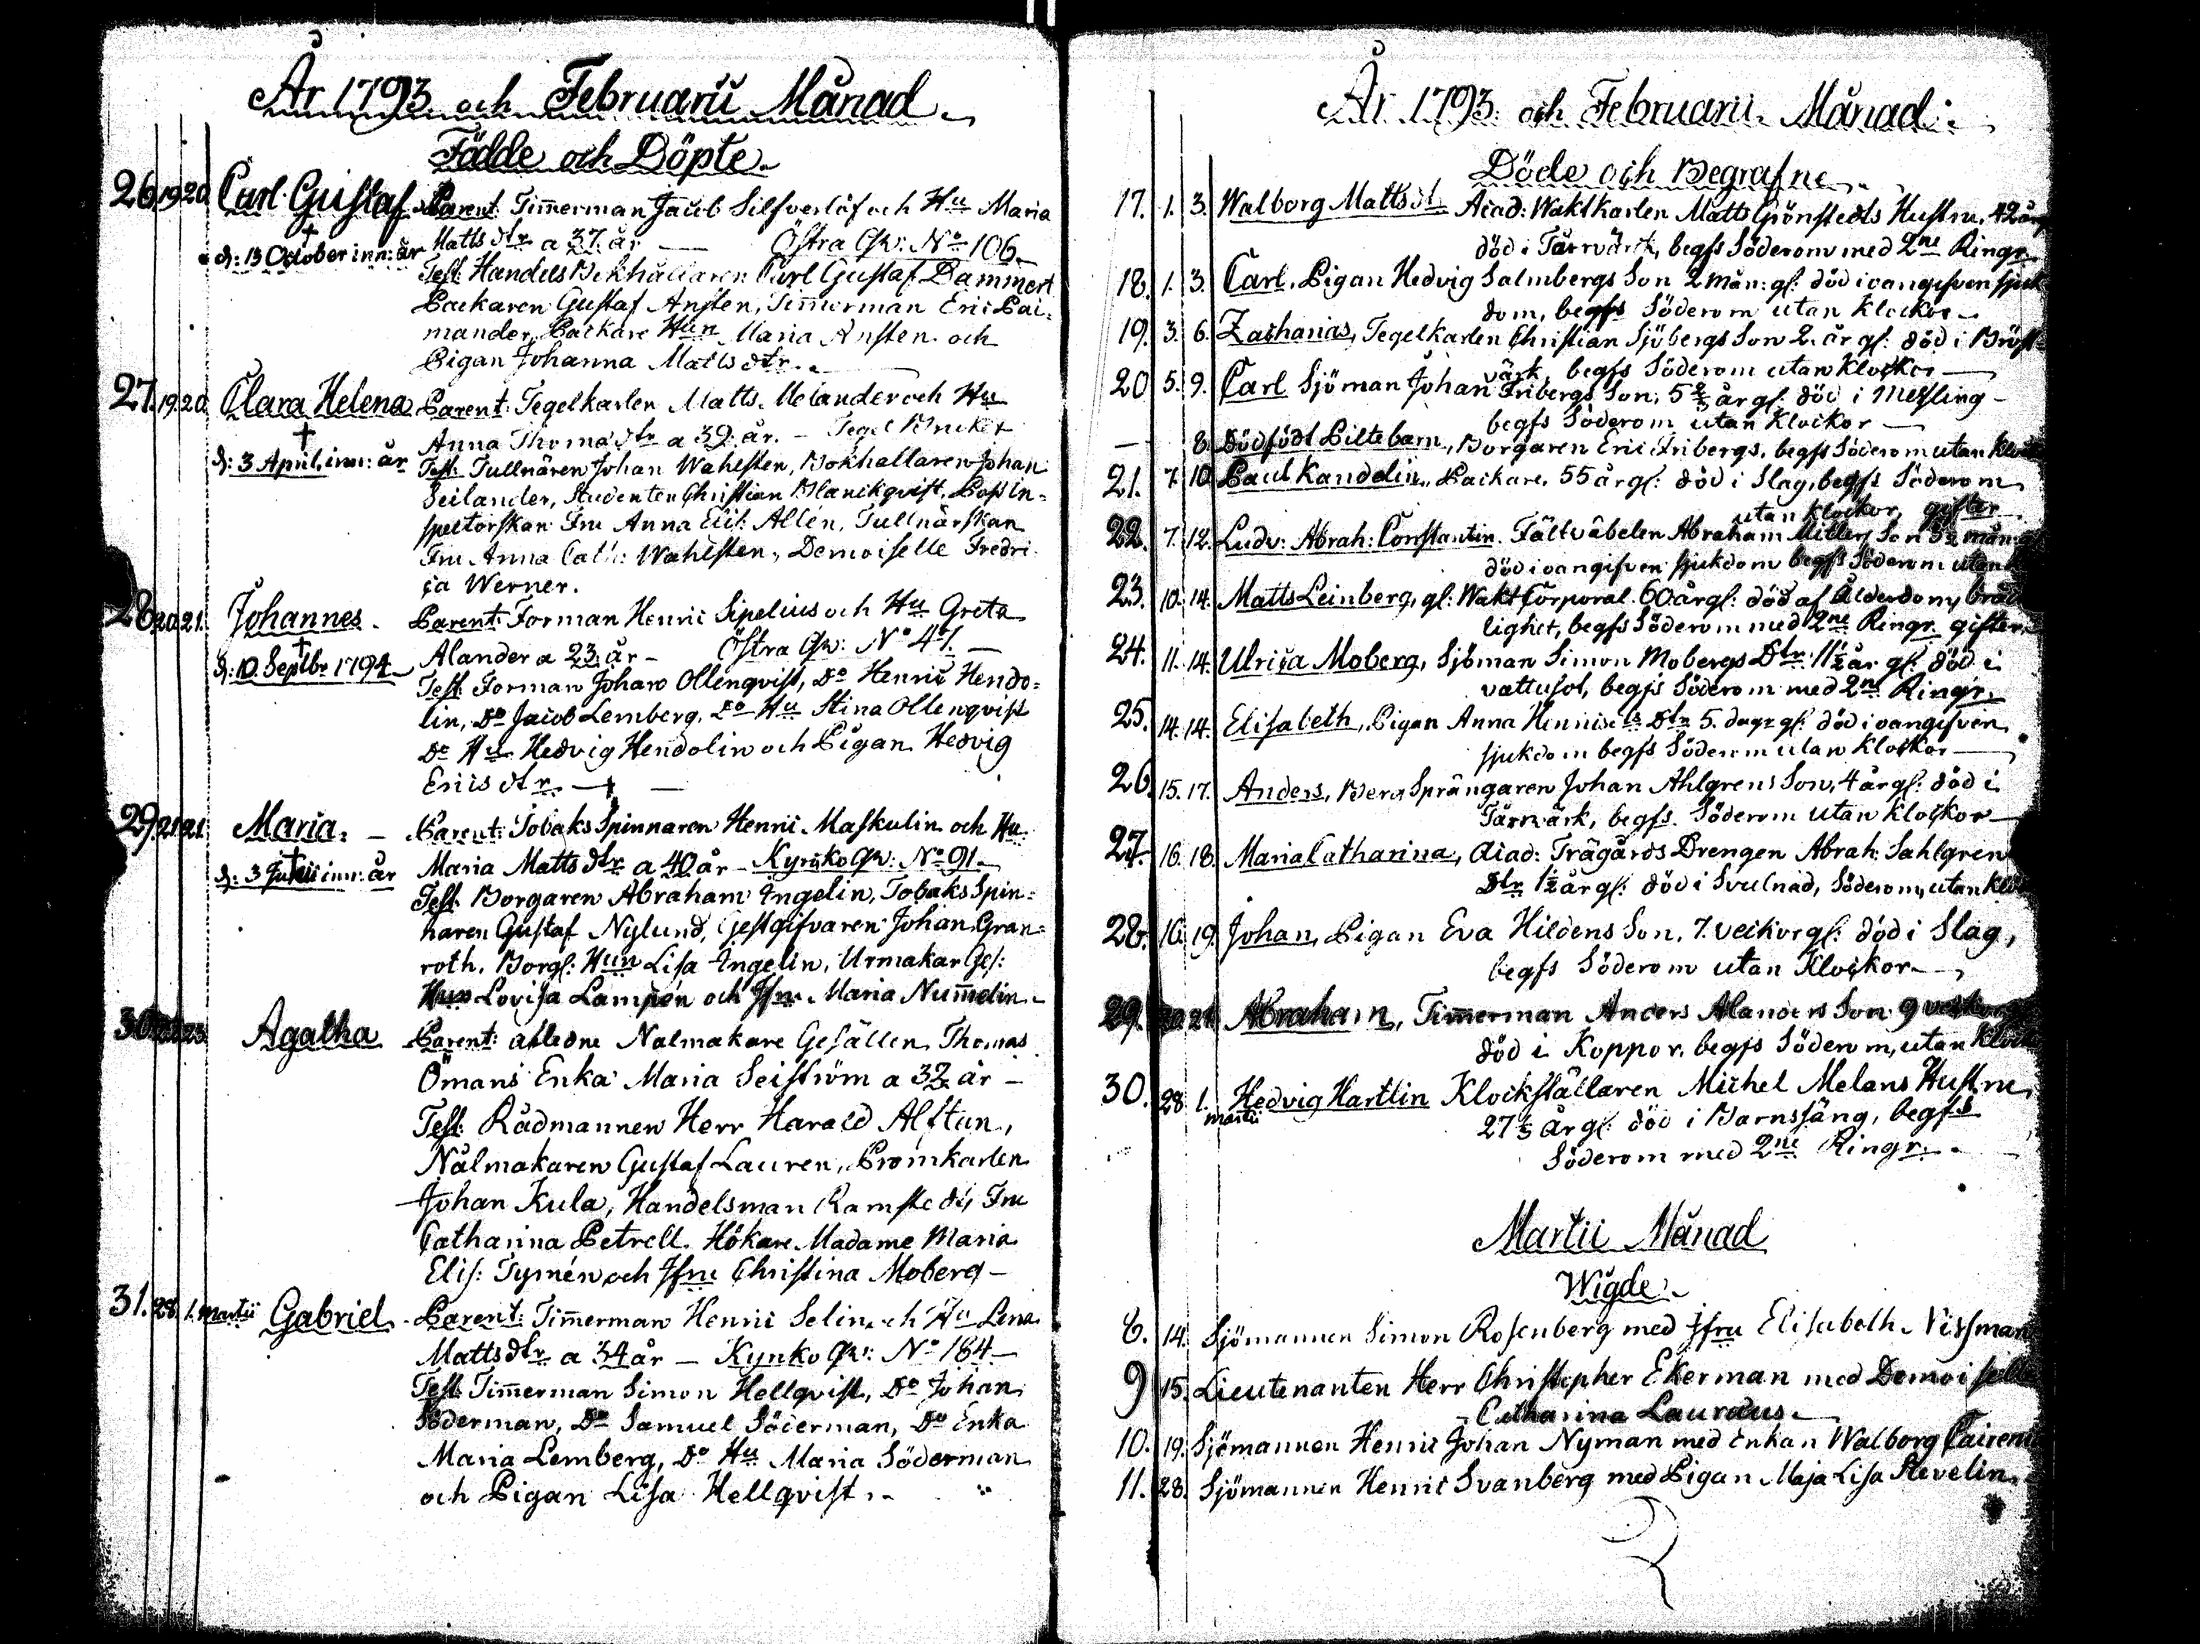 År 1793 och Februarii Månad
Födde och Döpte
26. 19. 20. Carl Gustaf. Parent: Timmerman Jacob Silfverlöf och Hu Maria
Matts dtr a 37. år — Östra Qv: No 106.
† d: 13 October inn: år
Test. Handels Bokhållaren Carl Gustaf Dammert
Packaren Gustaf Ansten, Timmerman Eric Pai-
mander, Packare Hun Maria Ansten och
Pigan Johanna Matts dtr.
27. 19. 20. Clara Helena Parent: Tegelkarlen Matts Melander och Hu
Anna Thomas dtr a 39. år. — Tegel Bruket
† d: 3 April. inn: år Test: Tullnären Johan Wahlsten, Bokhallaren Johan
Seilander, Studenten Christian Blanckqvist, Post In-
spectorskan Fru Anna Elis: Allén, Tullnärskan
Fru Anna Cath: Wahlsten, Demoiselle Fredri-
ca Werner.
28. 20. 21. Johannes. Parent: Forman Henric Sipelius och Hu Greta
Alander a 23. år — Östra Qv: No 47. —
† d: 10. Septbr 1794
Test: Forman Johan Ollenqvist, Do Henric Hendo-
lin, Do Jacob Lemberg, Do Hu Stina Ollenqvist
Do Hu Hedvig Hendolin och Pigan Hedvig
Erics dtr. —
29. 21. 21. Maria. — Parent: Tobaks Spinnaren Henric Maskulin och Hu
Maria Matts dtr a 40 år — Kyrcko Qv: No 91.
† d: 3 inn: år
Test. Borgaren Abraham Ingelin, Tobaks Spin-
naren Gustaf Nylund, Gestgifvaren Johan Gran-
roth. Borg: Hun Lisa Ingelin, Urmakar Ges:
Hun Lovisa Lampén och Jfru Maria Nummelin.
30. 23. Agatha Parent: afledne Nalmakare Gesällen Thomas
Ömans Enka Maria Seiström a 32 år —
Test: Rådmannen Herr Harald Alftan,
Nålmakaren Gustaf Lauren, Promkarlen
Johan Kula, Handelsman Ramstedt, Fru
Catharina Petrell. Hökare Madame Maria
Elis: Tymén och Jfru Christina Moberg —
31. 28. 1. Martii Gabriel. Parent: Timmerman Henric Selin och Hu Lena
Matts dtr a 34 år — Kyrko Qv: No 184 —
Test: Timmerman Simon Hellqvist, Do Johan
Söderman, Do Samuel Söderman, Do Enka
Maria Lemberg, Do Hu Maria Söderman
och Pigan Lisa Hellqvist.
År 1793. och Februarii Månad:
Döde och Begrafne
17. 1. 3. Walborg Matts dt. Acad: Waktkarlen Matts Grönstedts Hustru, 42 år
död i Tärrvärk, begfs Söderom med 2ne Ringr
18. 1. 3. Carl. Pigan Hedvig Salmbergs Son 2 mån: gl: död i oangifven sjuk
dom, begfs Söderom utan Klockor —
19. 3. 6. Zacharias, Tegelkarlen Christian Sjöbergs Son 2. år gl: död i Bröst
värk, begfs Söderom utan Klockor —
20 5. 9. Carl Sjöman Johan Fribergs Son, 5 2/3 år gl: död i Messling —
begfs Söderom utan Klockor —
— 8. Dödfödt Piltebarn, Borgaren Eric Fribergs, begfs Söderom utan Klock
21. 7. 10. Paul Kandelin, Packare, 55 år gl: död i Slag, begfs Söderom
utan Klockor, gifter
22. 7. 12. Ludv: Abrah: Constantin. Fältväbelen Abraham Millers Son 3½ mån: gl
död i oangifven sjukdom begfs Söderom utan
23. 10. 14. Matts Leinberg, gl: Wakt Corporal. 60 år gl: död af Ålderdoms bräck
lighet, begfs Söderom med 2ne Ringr gifter
24. 11. 14. Ulrica Moberg, Sjöman Simon Mobergs Dtr. 11½ år gl: död i
vattusot, begfs Söderom med 2ne Ringr.
25. 14. 14. Elisabeth, Pigan Anna Dtr 5. dagr gl: död i oangifven
sjukdom begfs Söderom utan Klockor —
26. 15. 17. Anders, Berg Sprängaren Johan Ahlgrens Son, 4 år gl: död i
Tärrvärk, begfs. Söderom utan Klockor —
27. 16. 18. Maria Catharina, Acad: Trägårds Drengen Abrah: Sahlgren
Dtr 1½ år gl: död i Svulnad, Söderom, utan Klo
28. 16. 19. Johan, Pigan Eva Hildens Son. 7. veckor gl: död i Slag,
begfs Söderom utan Klockor —
29. 20. 21. Abraham, Timmerman Anders Alanders Son 9 veckor
död i Koppor, begfs Söderom, utan Klock
30. 28. 1. Martii Hedvig Hartlin Klockställaren Michel Melans Hustru
27 1/3 år gl: död i Barnssäng, begfs
Söderom med 2ne Ringr.
Martii Månad
Wigde.
8. 14. Sjömannen Simon Rosenberg med Jfru Elisabeth Nissman
9 15. Lieutenanten Herr Christopher Ekerman med Demoiselle
Catharina Lauræus.
10. 19. Sjömannen Henric Johan Nyman med Enkan Walborg
11. 28. Sjömannen Henric Svanberg med Pigan Maja Lisa Stevelin.